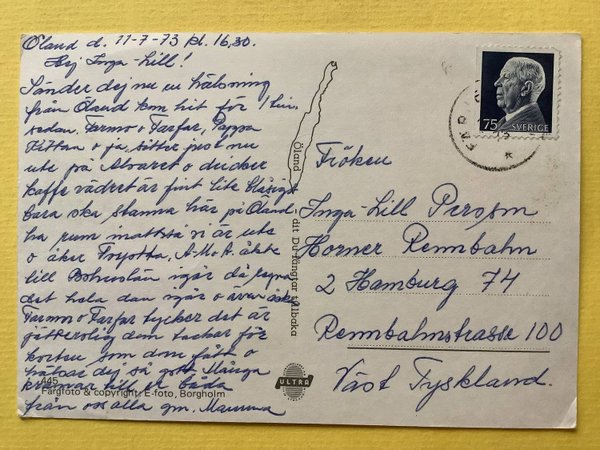 Öland d. 11-7-73 kl. 16,30.
Hej Inga-Lill!
Sänder dej nu en hälsning
från Öland kom hit för 1 tim.
sedan. Farmo o Farfar, Pappa
Kittan o ja, sitter just nu
ute på Alvaret o dricker
kaffe vädret är fint lite blåsigt
bara ska stanna här på Öland
ha rum inattså vi är ute
o åker Toyotta, A.M.A. åkte
till Bohuslän igår då regna
det hela dan igår o även
Farmo o Farfar tycker det är
jätterolig dom tackar för
korten som dom fått o
hälsar dej så gott Många
kramar till er båda
från oss alla gm. Mamma
Öland
dit Du längtar tillbaka
445
Färgfoto & copyright: E-foto, Borgholm
ULTRA
75
SVERIGE
Fröken
Inga-Lill Persson
Horner Rennbahn
2 Hamburg 74
Rennbahnstrasse 100
Väst Tyskland.